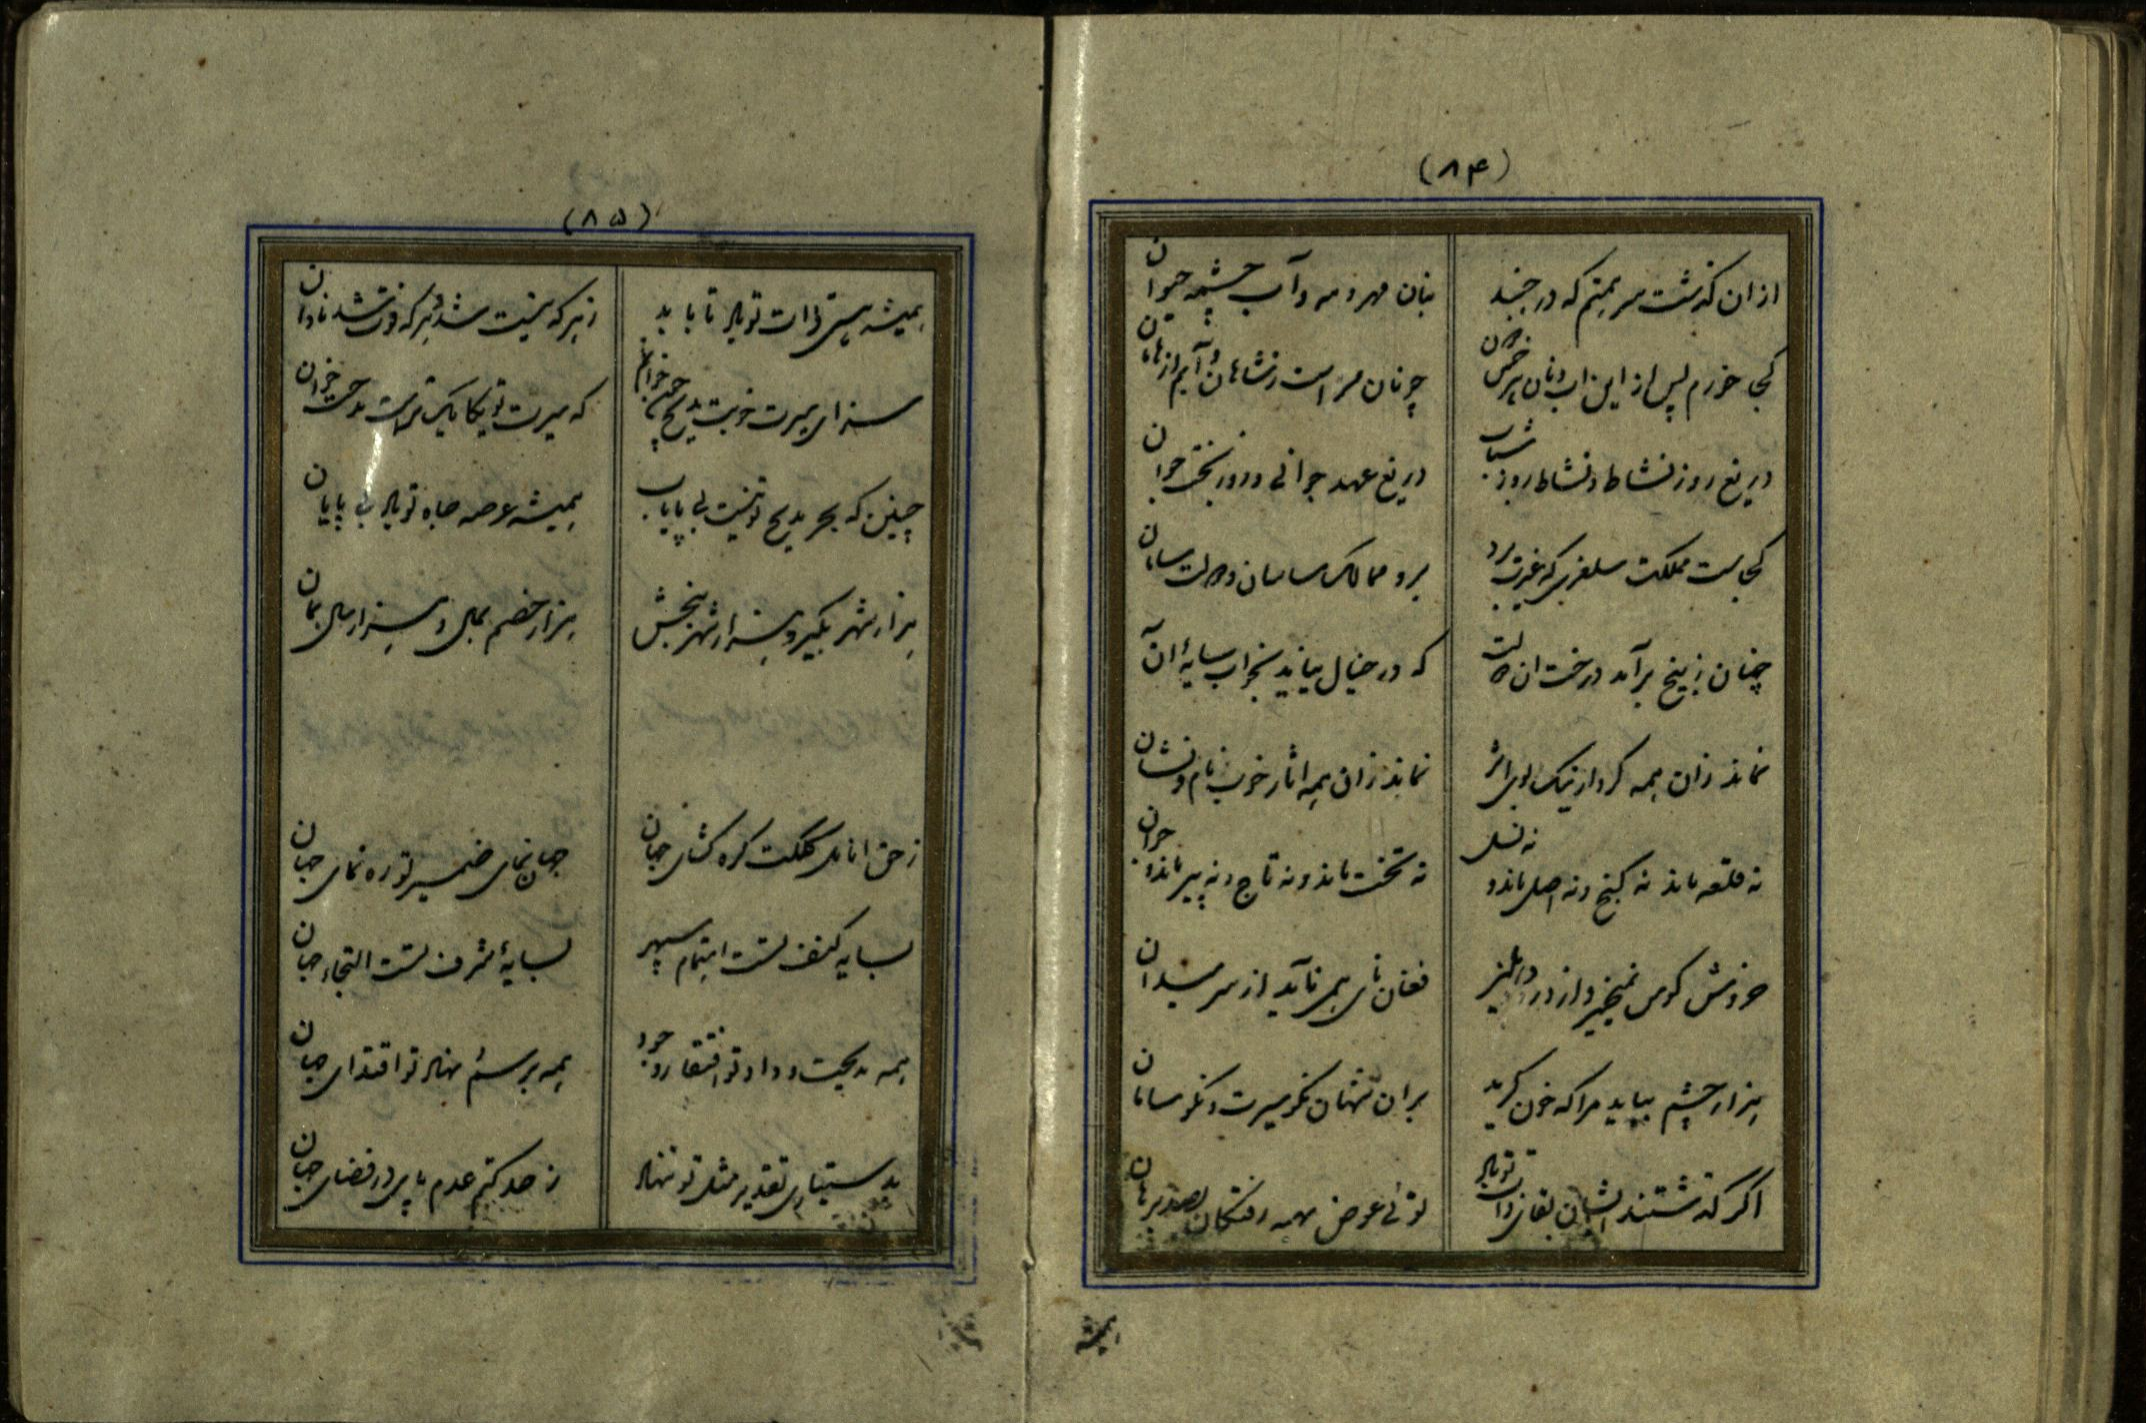 (۸۴)
ازان گذشت سر همتم که در جنبد بنان مهر و مه و آب چشمه حیوان
کجا خورم پس ازین آب و نان هر خس
دریغ روز نشاط و نشاط روز شباب دریغ عهد جوانی و روز بخت جوان
کجاست مملکت سلغری که غیرت برد بر و ممالک ساسان و دولت سامان
چنان ز بیخ برآمد درخت آن دولت که در خیال نیاید بخواب سایهٔ آن
نماند زان همه کردار نیک بوی و اثر نماند زان همه آثار خوب نام و نشان
نه قلعه ماند نه گنج و نه اصل ماند و نه نسل نه تخت ماند و نه تاج و نه پیر ماند و جوان
خروش کوس نمیخیزد از در دهلیز فغان نای همی ناید از سر میدان
هزار چشم بباید مرا که خون گرید بران شهان نکو سیرت و نکو سامان
اگر گذشتند ایشان بقای ذات تو باد توئی عوض همه رفتگان بصد برهان
همیشه
(۸۵)
همیشه هستی ذات تو باد تا بابد ز هر که نیست شد و هر که فوت شد تاوان
سزای سیرت خوبت مدیح چون خوانم که سیرت تو یکایک تراست مدحت خوان
چنین که بحر مدیح تو نیست بی پایاب همیشه عرصه جاه تو باد بی پایان
هزار شهر بگیر و هزار شهر ببخش هزار خصم بمال و هزار سال بمان
زهی انامل کلکت گره گشای جهان جهان نمای ضمیر تو ره نمای جهان
بسایه کنف تست اهتمام سپهر بسایهٔ شرف تست التجاء جهان
همه بدیحت و داد تو افتقار وجود همه برسم نهاد تو اقتدای جهان
بدستیاری تقدیر مثل تو ننهاد ز حد کتم عدم پای در فضای جهان